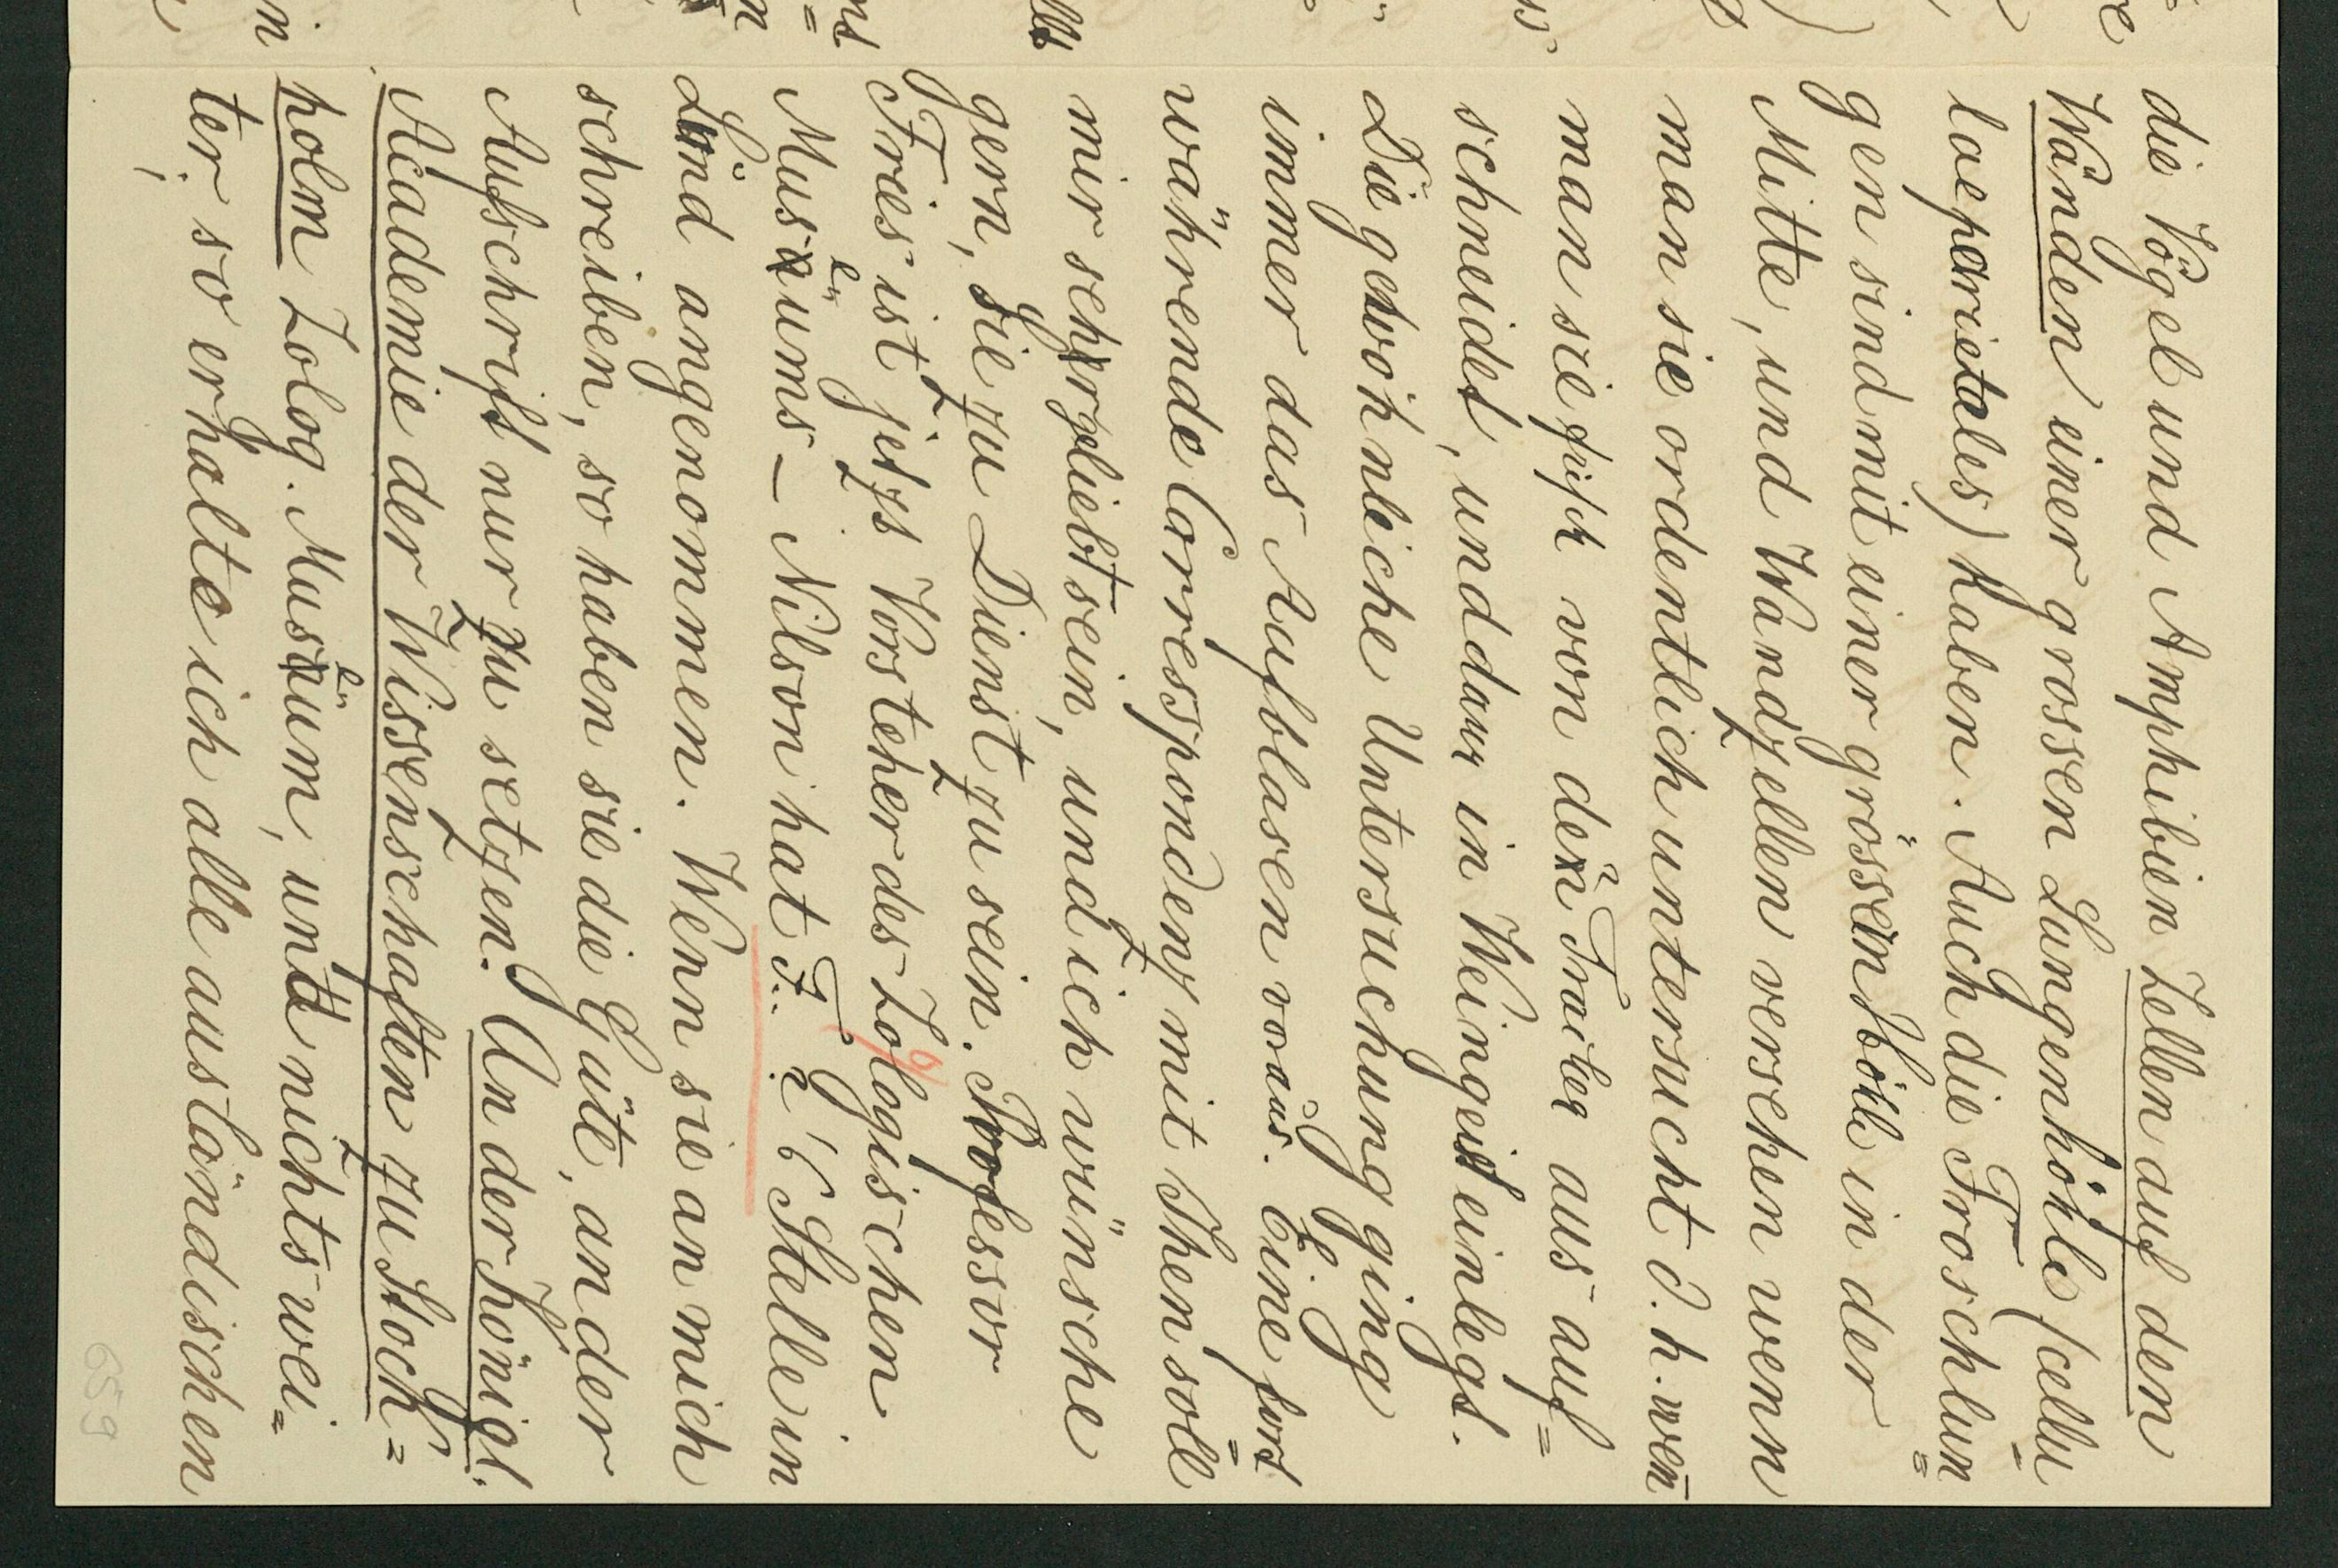 die Vögel und Amphibien Zellen auf den
Wänden einer grossen Lungenhöhle (cellu-
lae parietales) haben. Auch die Froschlun=
gen sind mit einer grössern Höle in der
Mitte, und Wandzellen versehen wenn
man sie ordentlich untersucht d. h. wen̄
man sie frisch von der Trachea aus auf=
schneidet, und dann in Weingeist einlegt.
Die gewöhnliche Untersuchung ging
immer das Aufblasen voraus. Eine fort=
währende Correspondenz mit Ihnen soll
mir sehr lieb sein, und ich wünsche
gern, Sie zu Dienst zu sein. Professor
Fries ist jetzt Vorsteher des Zologischen
Museums – Nilson hat s. Stelle in
Lund angenommen. Wenn sie an mich
schreiben, so haben sie die Güte, an der
Aufschrift nur zu setzen. An der Königl.
Academie der Wissenschaften zu Stock=
holm Zolog. Museum, und nichts wei=
ter, so erhalte ich alle ausländischen
659